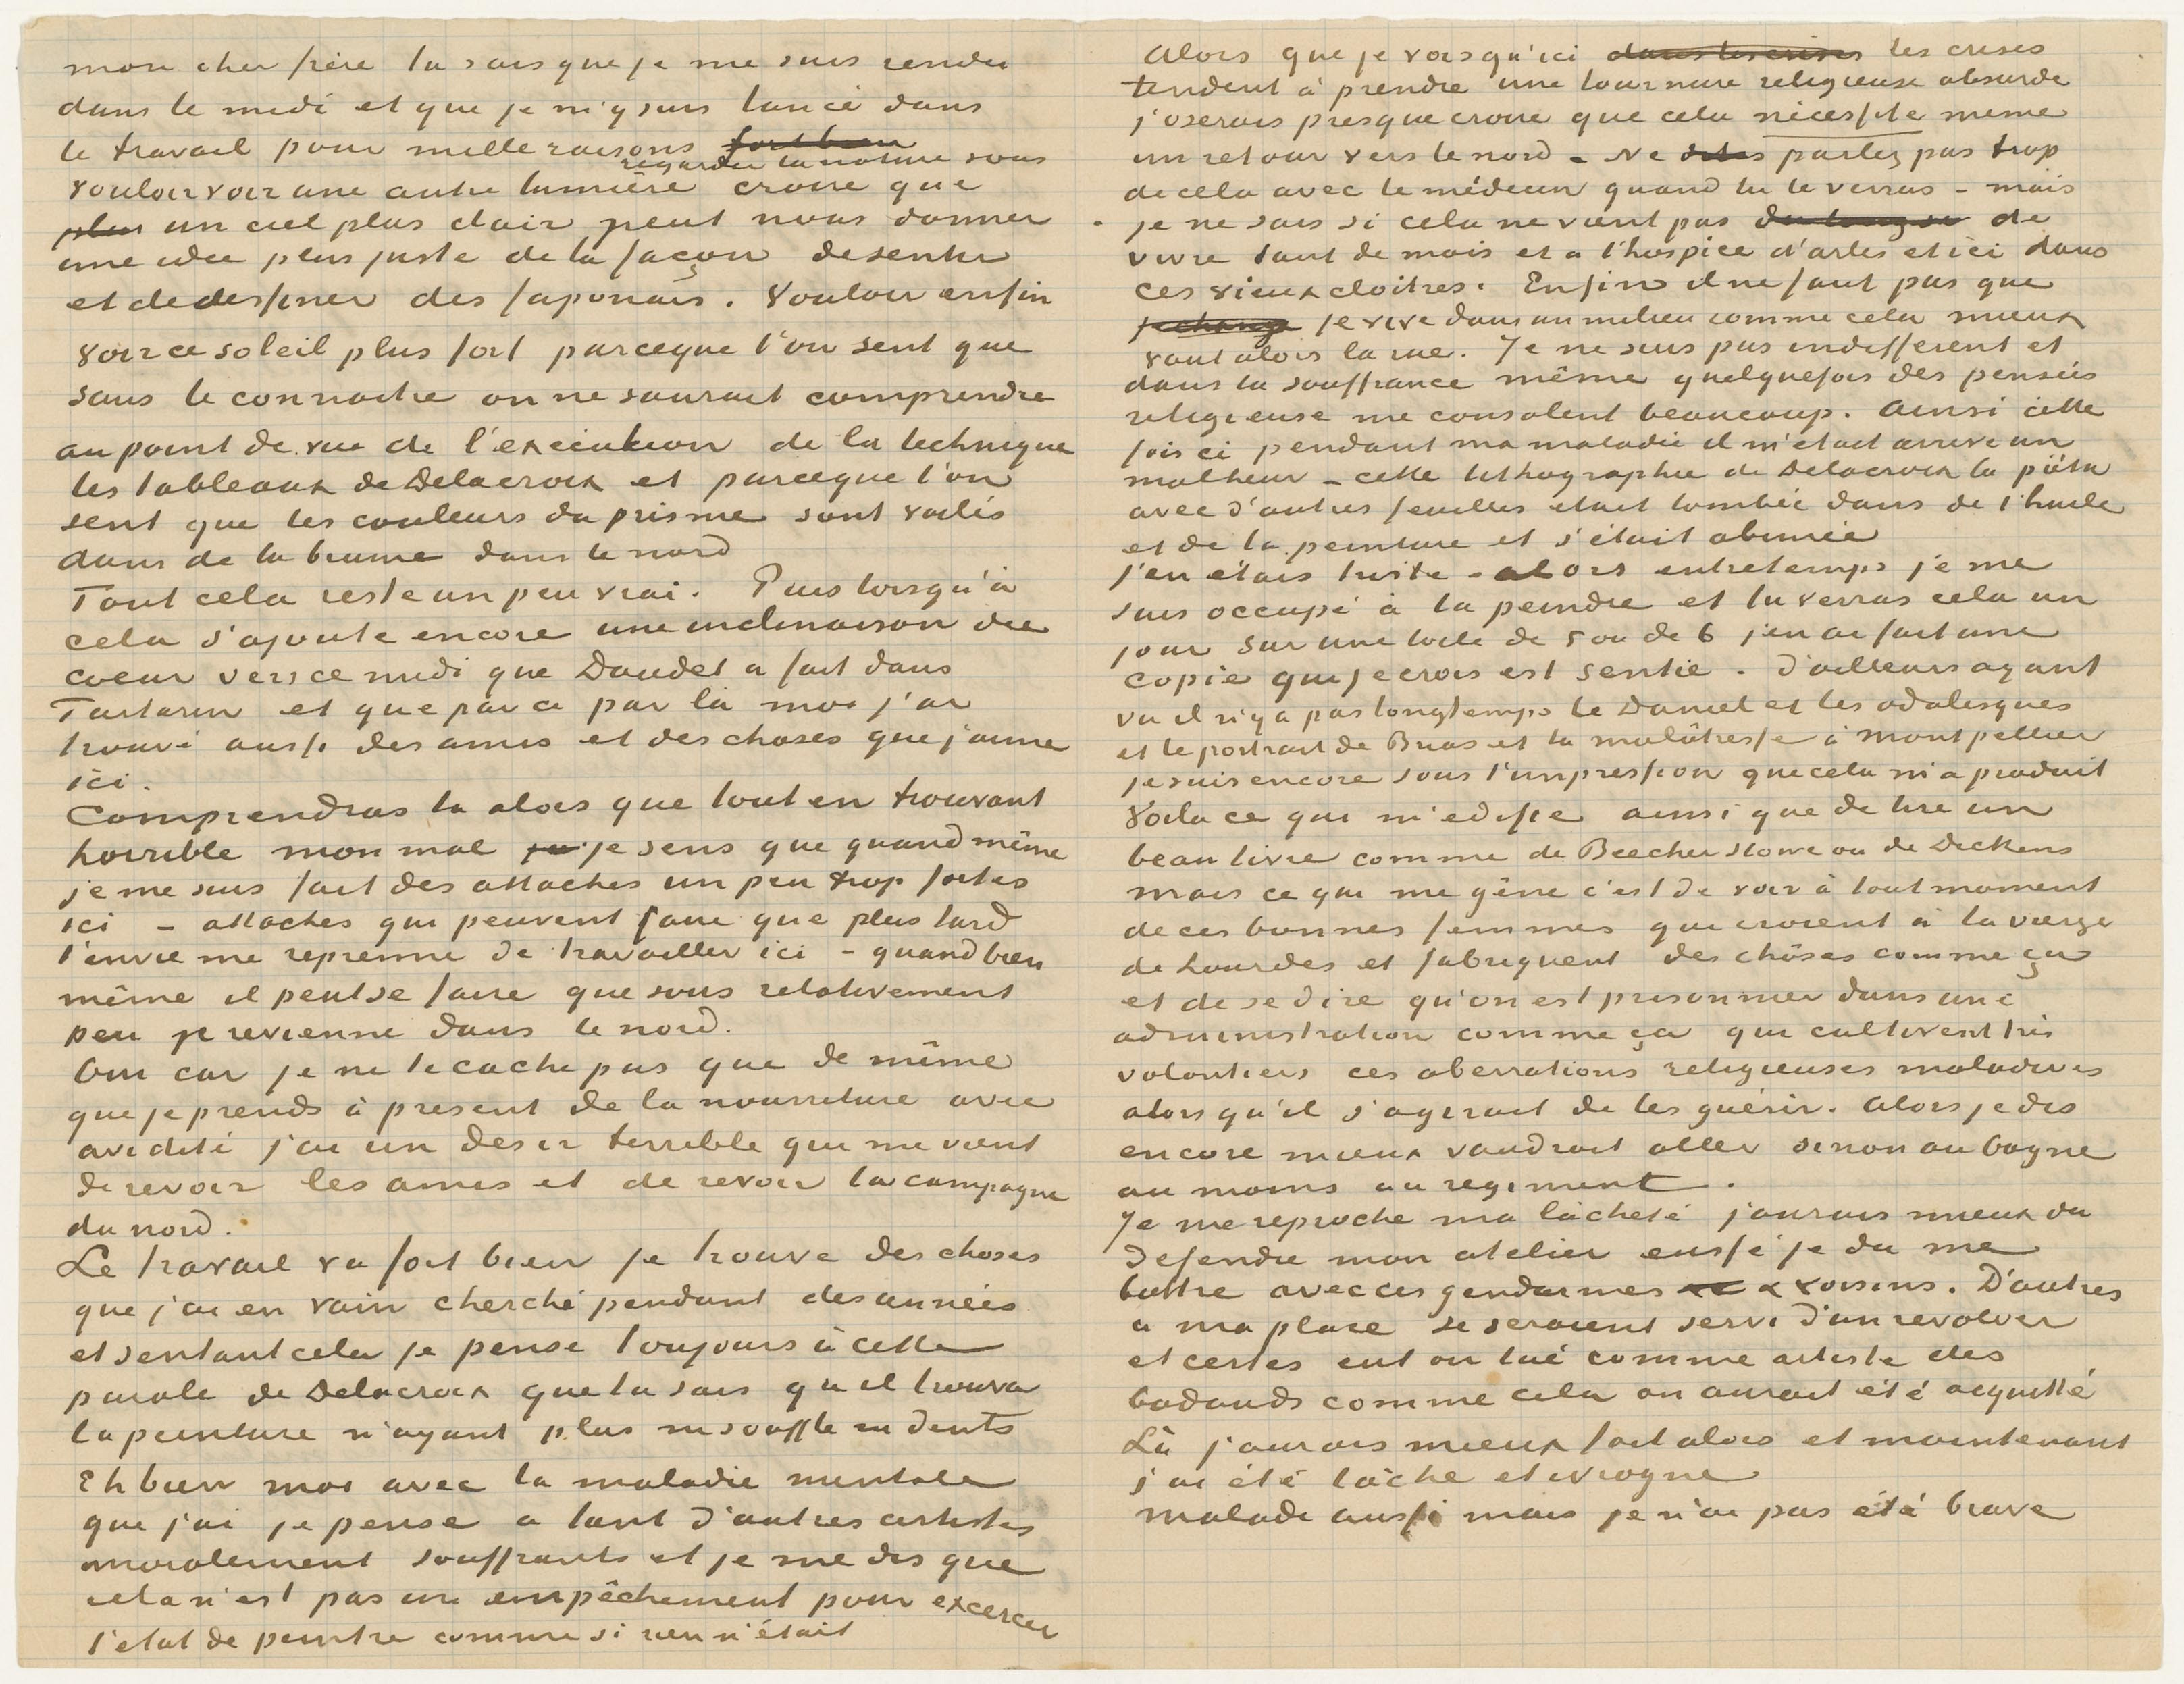 mon cher frère tu sais que je me suis rendu
dans le midi et que je m'y suis lancé dans
le travail pour mille raisons fort bien
regarder la nature sous
vouloir voir une autre lumière croire que
plus un ciel plus clair peut nous donner
une idée plus juste de la façon de sentir
et de dessiner des japonais. Vouloir enfin
voir ce soleil plus fort parceque l'on sent que
sans le connaitre on ne saurait comprendre
au point de vue de l'exécution de la technique
les tableaux de Delacroix et parceque l'on
sent que les couleurs du prisme sont voilés
dans de la brume dans le nord
Tout cela reste un peu vrai. Puis lorsqu'à
cela s'ajoute encore une inclinaison du
coeur vers ce midi que Daudet a fait dans
Tartarin et que par ci par là moi j'ai
trouvé aussi des amis et des choses que j'aime
ici.
Comprendras tu alors que tout en trouvant
horrible mon mal je sens que quand même
je me suis fait des attaches un peu trop fortes
ici – attaches qui peuvent faire que plus tard
l'envie me reprenne de travailler ici – quand bien
même il peut se faire que sous relativement
peu je revienne dans le nord.
Oui car je ne te cache pas que de même
que je prends à present de la nourriture avec
avidité j'ai un desir terrible qui me vient
de revoir les amis et de revoir la campagne
du nord.
Le travail va fort bien je trouve des choses
que j'ai en vain cherché pendant des années
et sentant cela je pense toujours à cette
parole de Delacroix que tu sais qu'il trouva
la peinture n'ayant plus ni souffle ni dents
Eh bien moi avec la maladie mentale
que j'ai je pense a tant d'autres artistes
moralement souffrants et je me dis que
cela n'est pas un empêchement pour excercer
l'etat de peintre comme si rien n'était
Alors que je vois qu'ici dans les crises les crises
tendent à prendre une tournure religieuse absurde
j'oserais presque croire que cela nécessite meme
un retour vers le nord – Ne parlez pas trop
de cela avec le médecin quand tu le verras – mais
je ne sais si cela ne vient pas de
vivre tant de mois et a l'hospice d'arles et ici dans
ces vieux cloitres. Enfin il ne faut pas que
je change je vive dans un milieu comme cela mieux
vaut alors la rue. Je ne suis pas indifferent et
dans la souffrance même quelquefois des pensées
religieuse me consolent beaucoup. Ainsi cette
fois ci pendant ma maladie il m'etait arrivé un
malheur – cette lithographie de Delacroix la piéta
avec d'autres feuilles etait tombée dans de l'huile
et de la peinture et s'était abimée
j'en étais triste – alors entretemps je me
suis occupé à la peindre et tu verras cela un
jour sur une toile de 5 ou de 6 j'en ai fait une
copie qui je crois est sentie. D'ailleurs ayant
vu il n'y a pas longtemps le Daniel et les odalisques
et le portrait de Bruas et la mulâtresse à Montpellier
je suis encore sous l'impression que cela m'a produit
Voila ce qui m'edifie ainsi que de lire un
beau livre comme de Beecher Stowe ou de Dickens
mais ce qui me gêne c'est de voir à tout moment
de ces bonnes femmes qui croient à la vierge
de Lourdes et fabriquent des chôses comme ça
et de se dire qu'on est prisonnier dans une
administration comme ça qui cultivent très
volontiers ces aberrations religieuses maladives
alors qu'il s'agirait de les guérir. Alors je dis
encore mieux vaudrait aller sinon au bagne
au moins au regiment.
Je me reproche ma lâcheté j'aurais mieux du
defendre mon atelier eussé je du me
battre avec ces gendarmes & voisins. D'autres
a ma place se seraient servi d'un revolver
et certes eut on tué comme artiste des
badauds comme cela on aurait été acquitté
Là j'aurais mieux fait alors et maintenant
j'ai été lâche et ivrogne
malade aussi mais je n'ai pas été brave